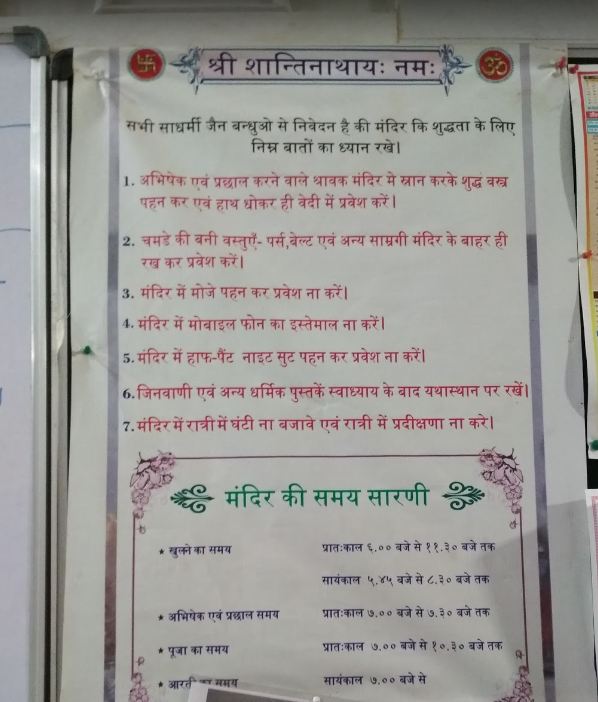 श्री शान्तिनाथायः नमः
सभी साधर्मी जैन बन्धुओ से निवेदन है की मंदिर कि शुद्धता के लिए
निम्न बातों का ध्यान रखे।
1. अभिषेक एवं प्रछाल करने वाले श्रावक मंदिर मे स्नान करके शुद्ध वस्त्र
पहन कर एवं हाथ धोकर ही वेदी में प्रवेश करें।
2. चमडे की बनी वस्तुएँ- पर्स,बेल्ट एवं अन्य साम्रगी मंदिर के बाहर ही
रख कर प्रवेश करें।
3. मंदिर में मोजे पहन कर प्रवेश ना करें।
4. मंदिर में मोबाइल फोन का इस्तेमाल ना करें।
5. मंदिर में हाफ-पैंट नाइट सुट पहन कर प्रवेश ना करें।
6. जिनवाणी एवं अन्य धर्मिक पुस्तकें स्वाध्याय के बाद यथास्थान पर रखें।
7. मंदिर में रात्री में घंटी ना बजावे एवं रात्री में प्रदीक्षणा ना करे।
मंदिर की समय सारणी
★ खुलने का समय प्रातःकाल ६.०० बजे से ११.३० बजे तक
सायंकाल ५.४५ बजे से ८.३० बजे तक
★ अभिषेक एवं प्रछाल समय प्रातःकाल ७.०० बजे से ७.३० बजे तक
★ पूजा का समय प्रातःकाल ७.०० बजे से १०.३० बजे तक
★ आरती का समय सायंकाल ७.०० बजे से